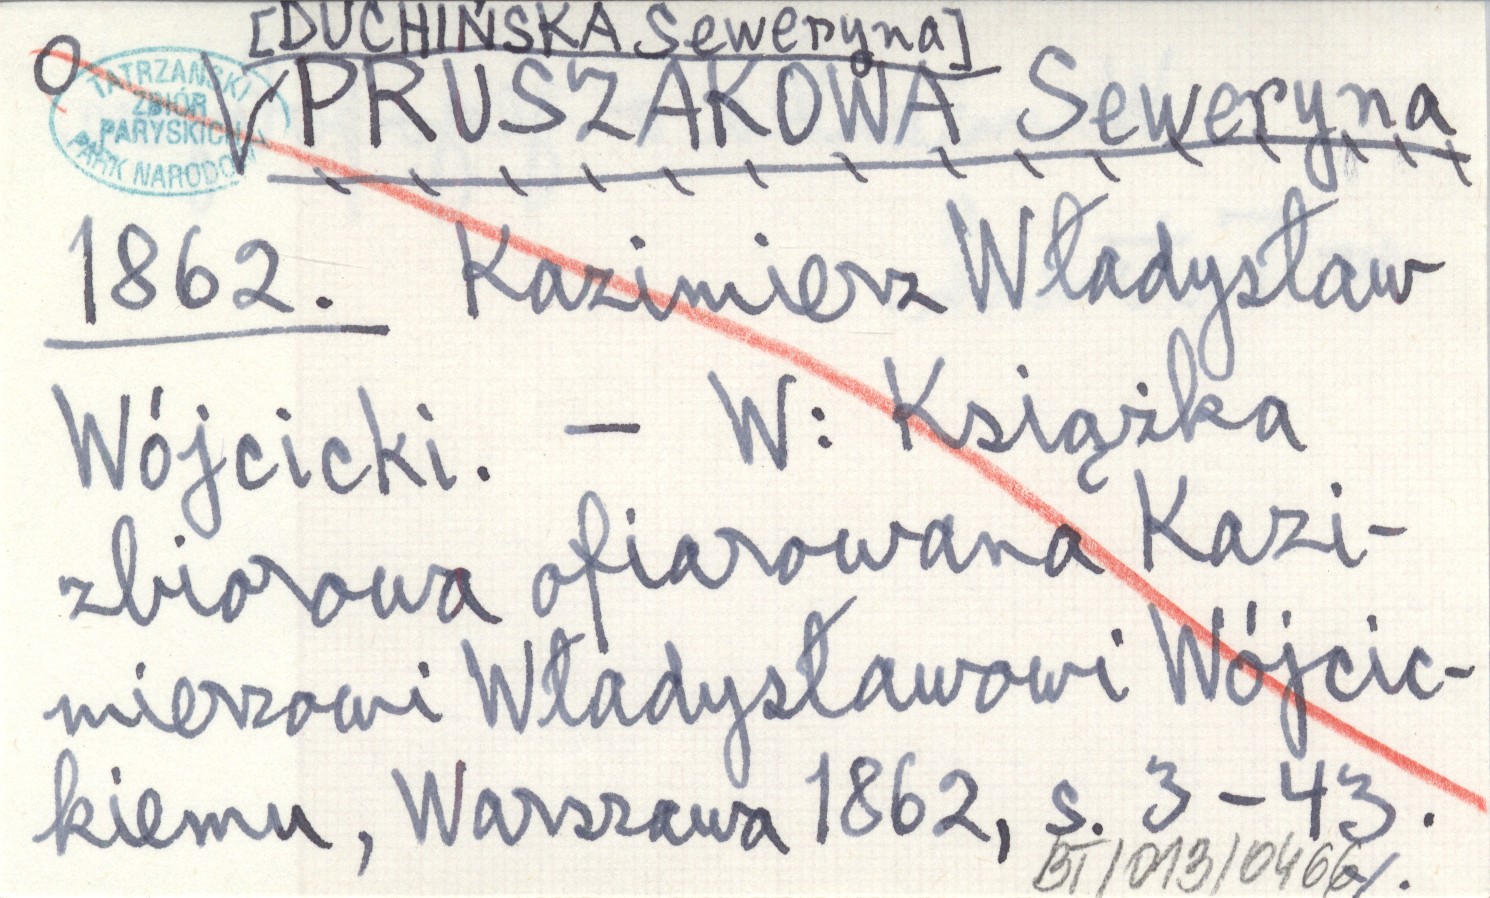 [DUCHIŃSKA Seweryna]
O V PRUSZAKOWA Seweryna
TATRZAŃSKI
ZBIÓR
PARYSKICH
PARK NARODOWY
1862. Kazimierz Władysław
Wójcicki. — W: Książka
zbiorowa ofiarowana Kazi-
mierzowi Władysławowi Wójcic-
kiemu, Warszawa 1862, s. 3-43.
BT/013/0466/.